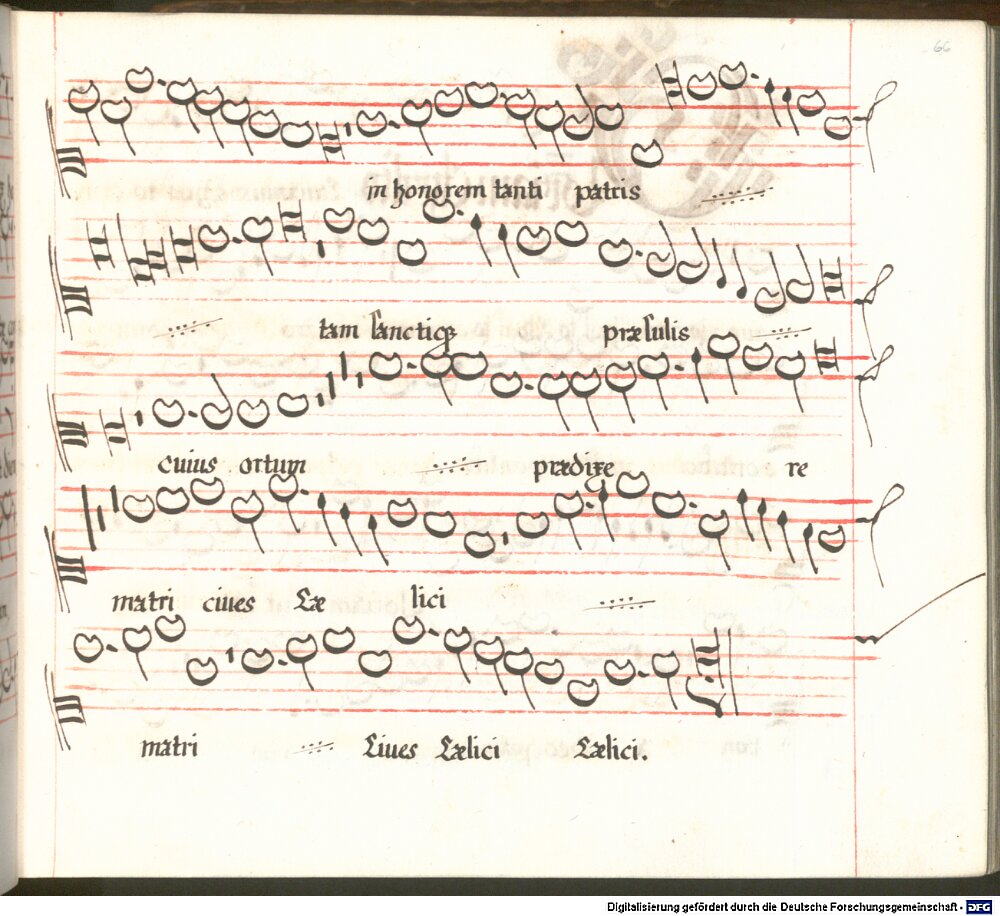 66
in honorem tanti patris
tam sanctiq₃ præsulis
cuius ortum prædixe re
matri ciues Cæ lici
matri Ciues Cælici Cælici.
Digitalisierung gefördert durch die Deutsche Forschungsgemeinschaft - DFG